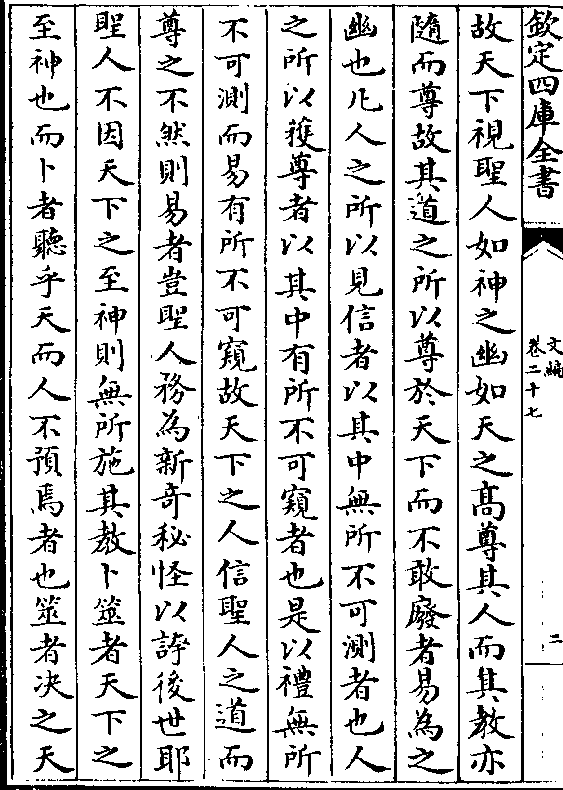 欽定四庫全書
文編
卷二十七
二
故天下視聖人如神之幽如天之髙尊其人而其教亦
隨而尊故其道之所以尊於天下而不敢廢者易為之
幽也凡人之所以見信者以其中無所不可測者也人
之所以獲尊者以其中有所不可窺者也是以禮無所
不可測而易有所不可窺故天下之人信聖人之道而
尊之不然則易者豈聖人務為新奇秘怪以誇後世耶
聖人不因天下之至神則無所施其教卜筮者天下之
至神也而卜者聽乎天而人不預焉者也筮者决之天